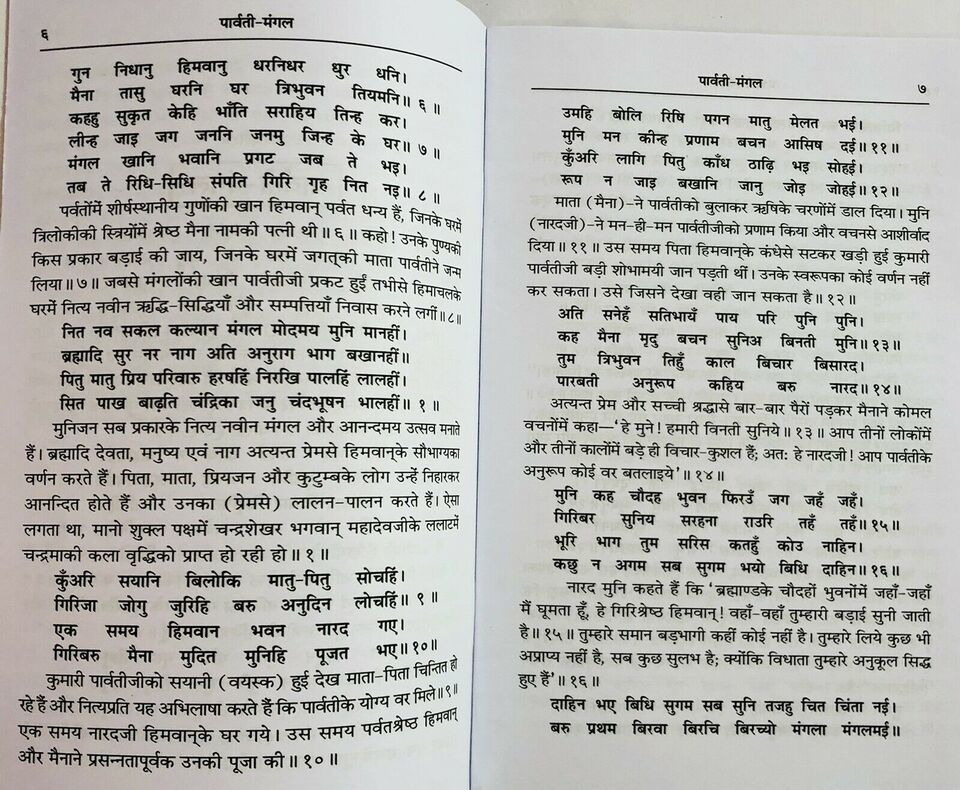 ६
पार्वती-मंगल
गुन निधानु हिमवानु धरनिधर धुर धनि।
मैना तासु घरनि घर त्रिभुवन तियमनि॥ ६ ॥
कहहु सुकृत केहि भाँति सराहिय तिन्ह कर।
लीन्ह जाइ जग जननि जनमु जिन्ह के घर॥ ७ ॥
मंगल खानि भवानि प्रगट जब ते भइ।
तब ते रिधि-सिधि संपति गिरि गृह नित नइ॥ ८ ॥
पर्वतोंमें शीर्षस्थानीय गुणोंकी खान हिमवान् पर्वत धन्य हैं, जिनके घरमें
त्रिलोकीकी स्त्रियोंमें श्रेष्ठ मैना नामकी पत्नी थी॥ ६॥ कहो! उनके पुण्यकी
किस प्रकार बड़ाई की जाय, जिनके घरमें जगत्‌की माता पार्वतीने जन्म
लिया॥ ७॥ जबसे मंगलोंकी खान पार्वतीजी प्रकट हुईं तभीसे हिमाचलके
घरमें नित्य नवीन ऋद्धि-सिद्धियाँ और सम्पत्तियाँ निवास करने लगीं॥ ८॥
नित नव सकल कल्यान मंगल मोदमय मुनि मानहीं।
ब्रह्मादि सुर नर नाग अति अनुराग भाग बखानहीं॥
पितु मातु प्रिय परिवारु हरषहिं निरखि पालहिं लालहीं।
सित पाख बाढ़ति चंद्रिका जनु चंदभूषन भालहीं॥ १ ॥
मुनिजन सब प्रकारके नित्य नवीन मंगल और आनन्दमय उत्सव मनाते
हैं। ब्रह्मादि देवता, मनुष्य एवं नाग अत्यन्त प्रेमसे हिमवान्‌के सौभाग्यका
वर्णन करते हैं। पिता, माता, प्रियजन और कुटुम्बके लोग उन्हें निहारकर
आनन्दित होते हैं और उनका (प्रेमसे) लालन-पालन करते हैं। ऐसा
लगता था, मानो शुक्ल पक्षमें चन्द्रशेखर भगवान् महादेवजीके ललाटमें
चन्द्रमाकी कला वृद्धिको प्राप्त हो रही हो॥ १॥
कुँअरि सयानि बिलोकि मातु-पितु सोचहिं।
गिरिजा जोगु जुरिहि बरु अनुदिन लोचहिं॥ ९ ॥
एक समय हिमवान भवन नारद गए।
गिरिबरु मैना मुदित मुनिहि पूजत भए॥ १०॥
कुमारी पार्वतीजीको सयानी (वयस्क) हुई देख माता-पिता चिन्तित हो
रहे हैं और नित्यप्रति यह अभिलाषा करते हैं कि पार्वतीके योग्य वर मिले॥ ९॥
एक समय नारदजी हिमवान्‌के घर गये। उस समय पर्वतश्रेष्ठ हिमवान्
और मैनाने प्रसन्नतापूर्वक उनकी पूजा की॥ १०॥
पार्वती-मंगल
७
उमहि बोलि रिषि पगन मातु मेलत भई।
मुनि मन कीन्ह प्रणाम बचन आसिष दई॥ ११॥
कुँअरि लागि पितु काँध ठाढ़ि भइ सोहई।
रूप न जाइ बखानि जानु जोइ जोहई॥ १२॥
माता (मैना)-ने पार्वतीको बुलाकर ऋषिके चरणोंमें डाल दिया। मुनि
(नारदजी)-ने मन-ही-मन पार्वतीजीको प्रणाम किया और वचनसे आशीर्वाद
दिया॥ ११॥ उस समय पिता हिमवान्‌के कंधेसे सटकर खड़ी हुई कुमारी
पार्वतीजी बड़ी शोभामयी जान पड़ती थीं। उनके स्वरूपका कोई वर्णन नहीं
कर सकता। उसे जिसने देखा वही जान सकता है॥ १२॥
अति सनेहँ सतिभायँ पाय परि पुनि पुनि।
कह मैना मृदु बचन सुनिअ बिनती मुनि॥ १३॥
तुम त्रिभुवन तिहुँ काल बिचार बिसारद।
पारबती अनुरूप कहिय बरु नारद॥ १४॥
अत्यन्त प्रेम और सच्ची श्रद्धासे बार-बार पैरों पड़कर मैनाने कोमल
वचनोंमें कहा—'हे मुने! हमारी विनती सुनिये॥ १३॥ आप तीनों लोकोंमें
और तीनों कालोंमें बड़े ही विचार-कुशल हैं; अत: हे नारदजी! आप पार्वतीके
अनुरूप कोई वर बतलाइये'॥ १४॥
मुनि कह चौदह भुवन फिरउँ जग जहँ जहँ।
गिरिबर सुनिय सरहना राउरि तहँ तहँ॥ १५॥
भूरि भाग तुम सरिस कतहुँ कोउ नाहिन।
कछु न अगम सब सुगम भयो बिधि दाहिन॥ १६॥
नारद मुनि कहते हैं कि 'ब्रह्माण्डके चौदहों भुवनोंमें जहाँ-जहाँ
मैं घूमता हूँ, हे गिरिश्रेष्ठ हिमवान्! वहाँ-वहाँ तुम्हारी बड़ाई सुनी जाती
है॥ १५॥ तुम्हारे समान बड़भागी कहीं कोई नहीं है। तुम्हारे लिये कुछ भी
अप्राप्य नहीं है, सब कुछ सुलभ है; क्योंकि विधाता तुम्हारे अनुकूल सिद्ध
हुए हैं'॥ १६॥
दाहिन भए बिधि सुगम सब सुनि तजहु चित चिंता नई।
बरु प्रथम बिरवा बिरचि बिरच्यो मंगला मंगलमई॥